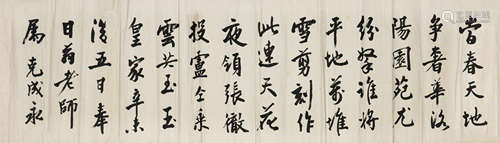 當春天地
爭奢華洛
陽園苑尤
紛拏誰將
平地萬堆
雪剪刻作
此連天花
夜領張徹
投盧仝乘
雲共至玉
皇家辛未
五日奉
日老師
属克成永